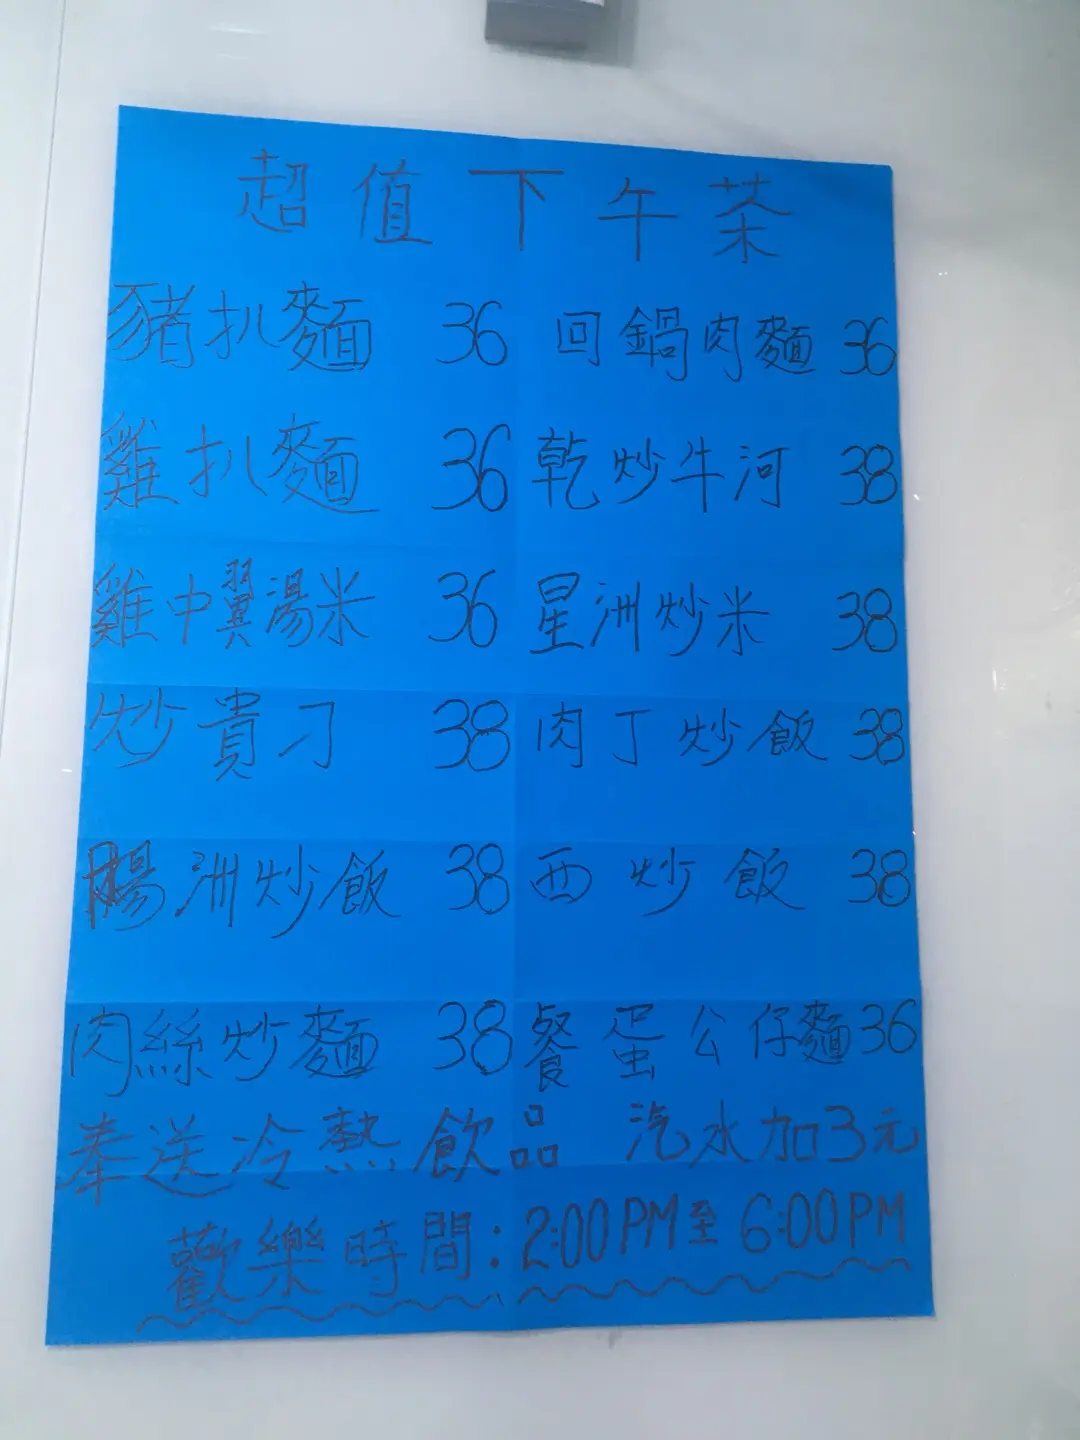 超值下午茶
豬扒麵 36 回鍋肉麵 36
雞扒麵 36 乾炒牛河 38
雞中翼湯米 36 星洲炒米 38
炒貴刁 38 肉丁炒飯 38
楊洲炒飯 38 西炒飯 38
肉絲炒麵 38 餐蛋公仔麵 36
奉送冷熱飲品 汽水加3元
歡樂時間:2:00PM至6:00PM